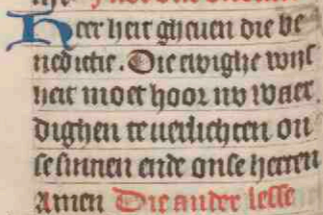 Heer heit gheuen die be
nedictie. Die ewighe wijs
heit moet hoor nv waer
dighen te uerlichten on
se sinnen ende onse herten
Amen Die ander lesse